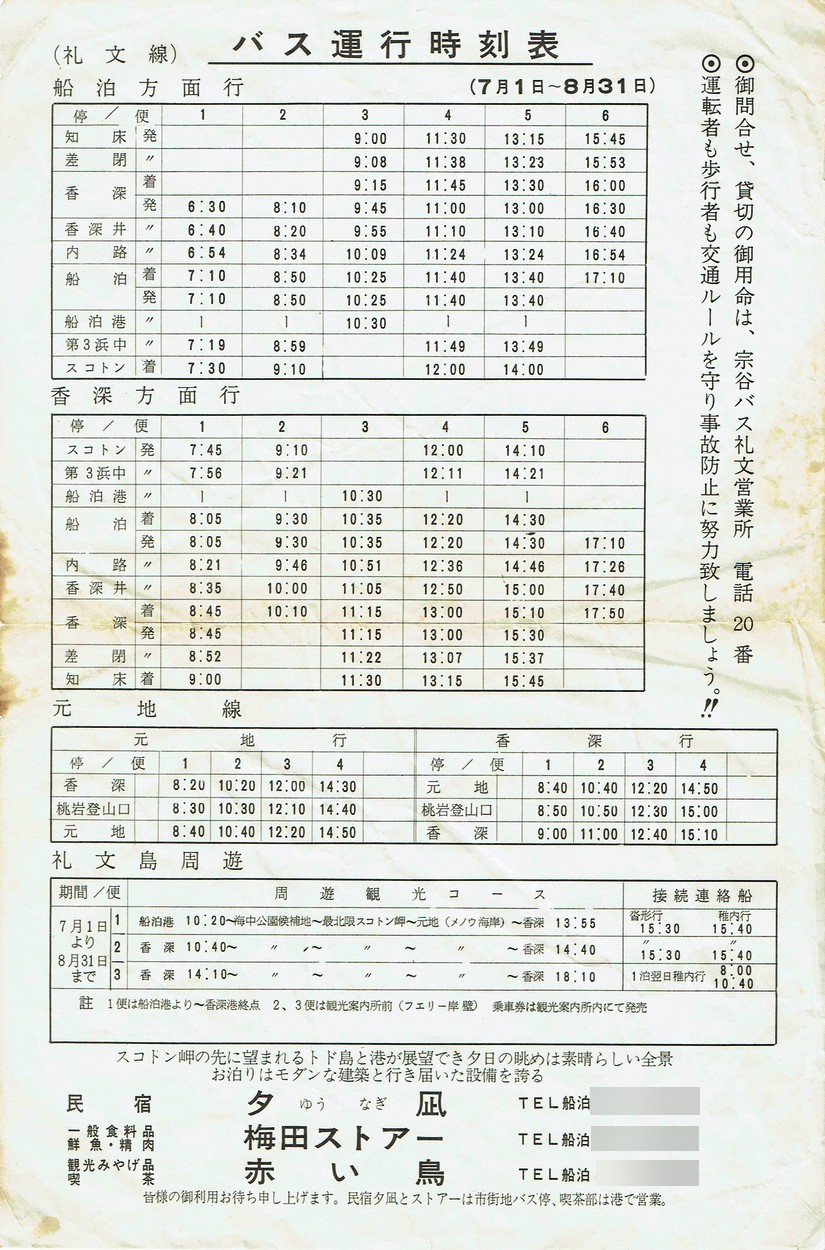 バス運行時刻表
(礼文線)
船泊方面行 (7月1日~8月31日)
停/便 1 2 3 4 5 6
知床 発 9:00 11:30 13:15 15:45
差閉 〃 9:08 11:38 13:23 15:53
香深 着 9:15 11:45 13:30 16:00
発 6:30 8:10 9:45 11:00 13:00 16:30
香深井 〃 6:40 8:20 9:55 11:10 13:10 16:40
内路 〃 6:54 8:34 10:09 11:24 13:24 16:54
船泊 着 7:10 8:50 10:25 11:40 13:40 17:10
発 7:10 8:50 10:25 11:40 13:40
船泊港 〃 | | 10:30 | |
第3浜中 〃 7:19 8:59 11:49 13:49
スコトン 着 7:30 9:10 12:00 14:00
香深方面行
停/便 1 2 3 4 5 6
スコトン 発 7:45 9:10 12:00 14:10
第3浜中 〃 7:56 9:21 12:11 14:21
船泊港 〃 | | 10:30 | |
船泊 着 8:05 9:30 10:35 12:20 14:30
発 8:05 9:30 10:35 12:20 14:30 17:10
内路 〃 8:21 9:46 10:51 12:36 14:46 17:26
香深井 〃 8:35 10:00 11:05 12:50 15:00 17:40
香深 着 8:45 10:10 11:15 13:00 15:10 17:50
発 8:45 11:15 13:00 15:30
差閉 〃 8:52 11:22 13:07 15:37
知床 着 9:00 11:30 13:15 15:45
◉御問合せ、貸切の御用命は、宗谷バス礼文営業所 電話20番
◉運転者も歩行者も交通ルールを守り事故防止に努力致しましょう。!!
元地線
元地行
停/便 1 2 3 4
香深 8:20 10:20 12:00 14:30
桃岩登山口 8:30 10:30 12:10 14:40
元地 8:40 10:40 12:20 14:50
香深行
停/便 1 2 3 4
元地 8:40 10:40 12:20 14:50
桃岩登山口 8:50 10:50 12:30 15:00
香深 9:00 11:00 12:40 15:10
礼文島周遊
期間/便 周遊観光コース 接続連絡船
7月1日より8月31日まで
1 船泊港 10:20~海中公園候補地~最北限スコトン岬~元地(メノウ海岸)~香深 13:55 沓形行 15:30 稚内行 15:40
2 香深 10:40~ 〃 ~ 〃 ~ 〃 ~香深 14:40 〃 15:30 〃 15:40
3 香深 14:10~ 〃 ~ 〃 ~ 〃 ~香深 18:10 1泊翌日稚内行 8:00 10:40
註 1便は船泊港より~香深港終点 2、3便は観光案内所前(フエリー岸壁) 乗車券は観光案内所内にて発売
スコトン岬の先に望まれるトド島と港が展望でき夕日の眺めは素晴らしい全景
お泊りはモダンな建築と行き届いた設備を誇る
民宿 夕凪 ゆうなぎ TEL船泊
一般食料品 鮮魚・精肉 梅田ストアー TEL船泊
観光みやげ品 喫茶 赤い鳥 TEL船泊
皆様の御利用お待ち申し上げます。民宿夕凪とストアーは市街地バス停、喫茶部は港で営業。